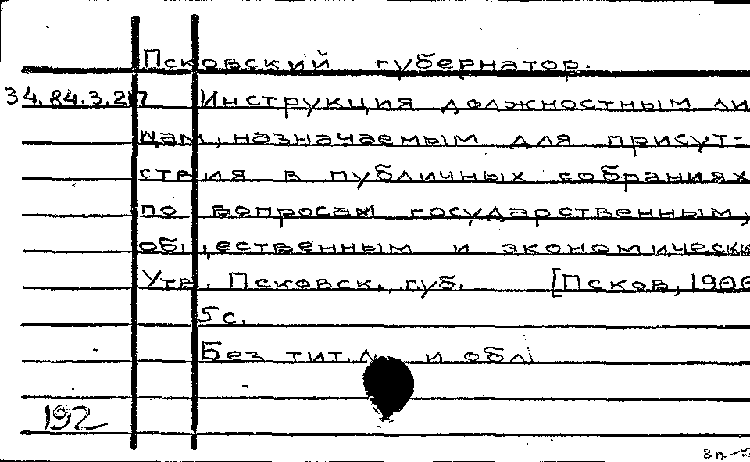 Псковский губернатор.
34.84.3.217 Инструкция должностным ли
цам, назначаемым для присут-
ствия в публичных собраниях
по вопросам государственным,
общественным и экономически
Утв. Псковск. губ. [Псков, 1906
5с.
Без тит.л. и обл.
192